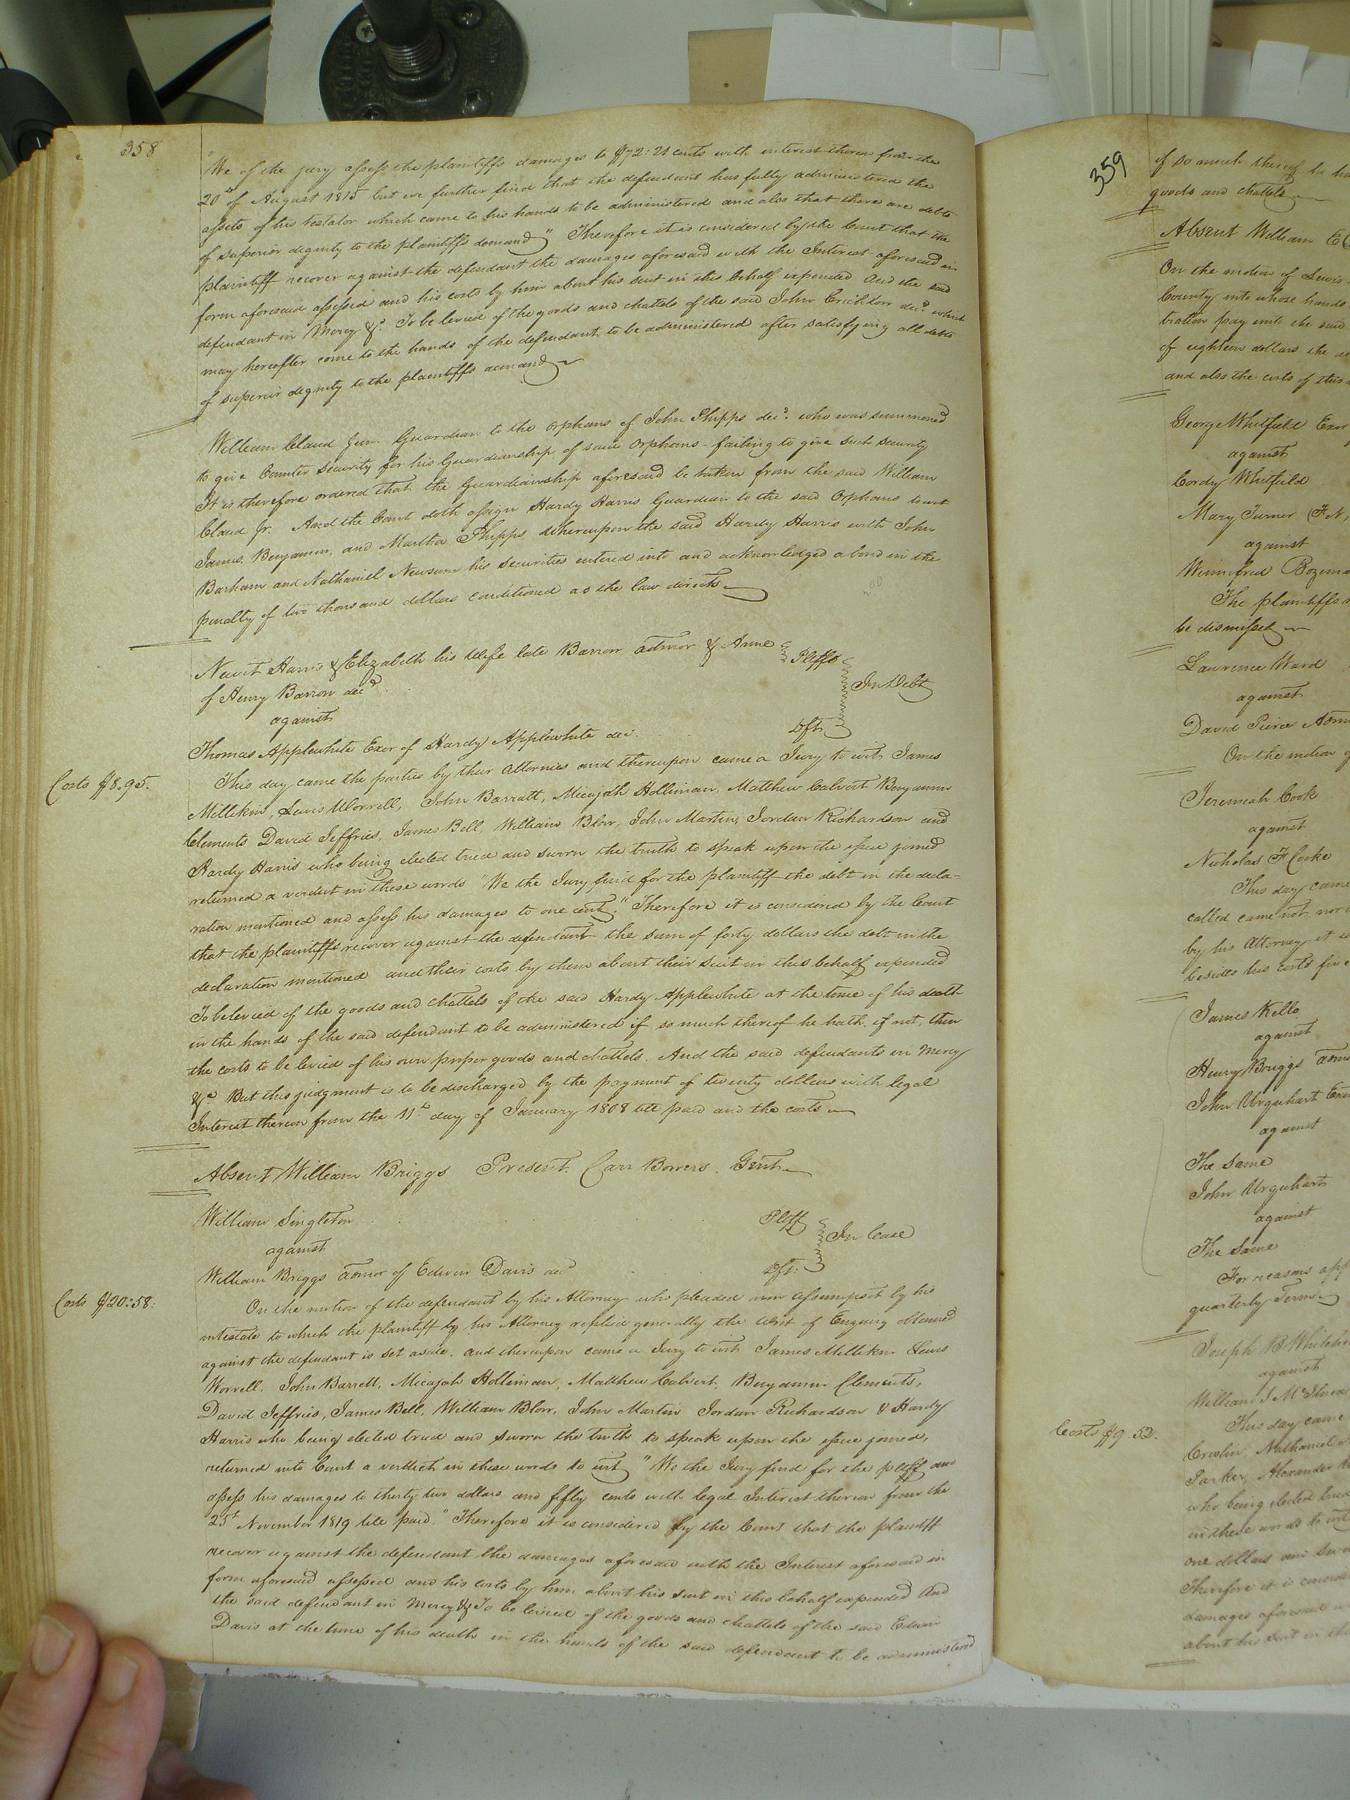 358
"We of the jury assess the plaintiffs damages to $72:21 cents with interest thereon from the
20th of August 1815 but we further find that the defendant has fully administered the
assets of his testator which came to his hands to be administered and also that there are debts
of superior dignity to the plaintiffs demand" Therefore it is considered by the Court that the
plaintiff recover against the defendant the damages aforesaid with the Interest aforesaid in
form aforesaid assessed and his costs by him about his suit in this behalf expended And the said
defendant in Mercy &c. To be levied of the goods and chattels of the said John Crichlow decd. which
may hereafter come to the hands of the defendant to be administered after satisfying all debts
of superior dignity to the plaintiffs demand
William Claud Jun Guardian to the orphans of John Phipps decd. who was summoned
to give Counter Security for his Guardianship of said Orphans - failing to give such security
It is therefore ordered that the Guardianship aforesaid be taken from the said William
Claud Jr. And the Court doth assign Hardy Harris Guardian to the said Orphans to wit
James, Benjamin, and Martha Phipps Whereupon the said Hardy Harris with John
Barham and Nathaniel Newsum his securities entered into and acknowledged a bond in the
penalty of two thousand dollars conditioned as the law directs
Newit Harris & Elizabeth his Wife late Barrow admor & Anne Pltffs
of Henry Barrow decd In Debt
against
Thomas Applewhite Exor of Hardy Applewhite dec Dft
Costs $8.95.
This day came the parties by their Attornies and thereupon came a Jury to wit James
Millikin, Lewis Worrell, John Barratt, Micajah Holliman, Matthew Calvert Benjamin
Clements David Jeffries, James Bell, William Blow, John Martin, Jordan Richardson and
Hardy Harris who being elected tried and sworn the truth to speak upon the issue joined
returned a verdict in these words "We the Jury find for the plaintiff the debt in the decla-
ration mentioned and assess his damages to one cent." Therefore it is considered by the Court
that the plaintiffs recover against the defendant the sum of forty dollars the debt in the
declaration mentioned and their costs by them about their suit in this behalf expended
To be levied of the goods and chattels of the said Hardy Applewhite at the time of his death
in the hands of the said defendant to be administered if so much thereof he hath, if not, then
the costs to be levied of his own proper goods and chattels. And the said defendants in Mercy
&c But this judgment is to be discharged by the payment of twenty dollars with legal
Interest thereon from the 11th day of January 1808 till paid and the costs
Absent William Briggs Present Carr Bowers. Gent.
William Singleton Pltff
against In Case
William Briggs admor of Edwin Davis decd Dft.
Costs $20:58:
On the motion of the defendant by his Attorney who pleaded non assumpsit by his
intestate to which the plaintiff by his Attorney replied generally the Writ of Enquiry obtained
against the defendant is set aside, and thereupon came a Jury to wit James Millikin Lewis
Worrell, John Barrett, Micajah Holliman, Matthew Calvert, Benjamin Clements,
David Jeffries, James Bell, William Blow, John Martin Jordan Richardson & Hardy
Harris who being elected tried and sworn the truth to speak upon the issue joined,
returned into Court a verdict in these words to wit "We the Jury find for the pltff and
assess his damages to thirty two dollars and fifty cents with legal Interest thereon from the
25th November 1819 till paid." Therefore it is considered by the Court that the plaintiff
recover against the defendant the damages aforesaid with the Interest aforesaid in
form aforesaid assessed and his costs by him about his suit in this behalf expended And
the said defendant in Mercy & To be levied of the goods and chattels of the said Edwin
Davis at the time of his death in the hands of the said defendant to be administered
359
if so much thereof he
goods and chattels
Absent William
On the motion of Lewis
County into whose hands
tration pay unto the said
of eighteen dollars the
and also the costs of this
George Whitfield Exor
against
Cordy Whitfield
Mary Turner
against
Winnifred Bozeman
The plaintiffs
be dismissed
Lawrence Ward
against
David Peirce Adm
On the motion
Jeremiah Cook
against
Nicholas F Cocke
This day came
called came not nor
by his Attorney it
besides his costs five
James Kello
against
Henry Briggs adm
John Urquhart Exor
against
The Same
John Urquhart
against
The Same
For reasons app
quarterly Term
Joseph B Whitehe
against
William
Costs $9.52.
This day came
Nathaniel
Parker, Alexander
who being elected tried
in these words to wit
one dollars and
Therefore it is consid
damages aforesaid
about his suit in this